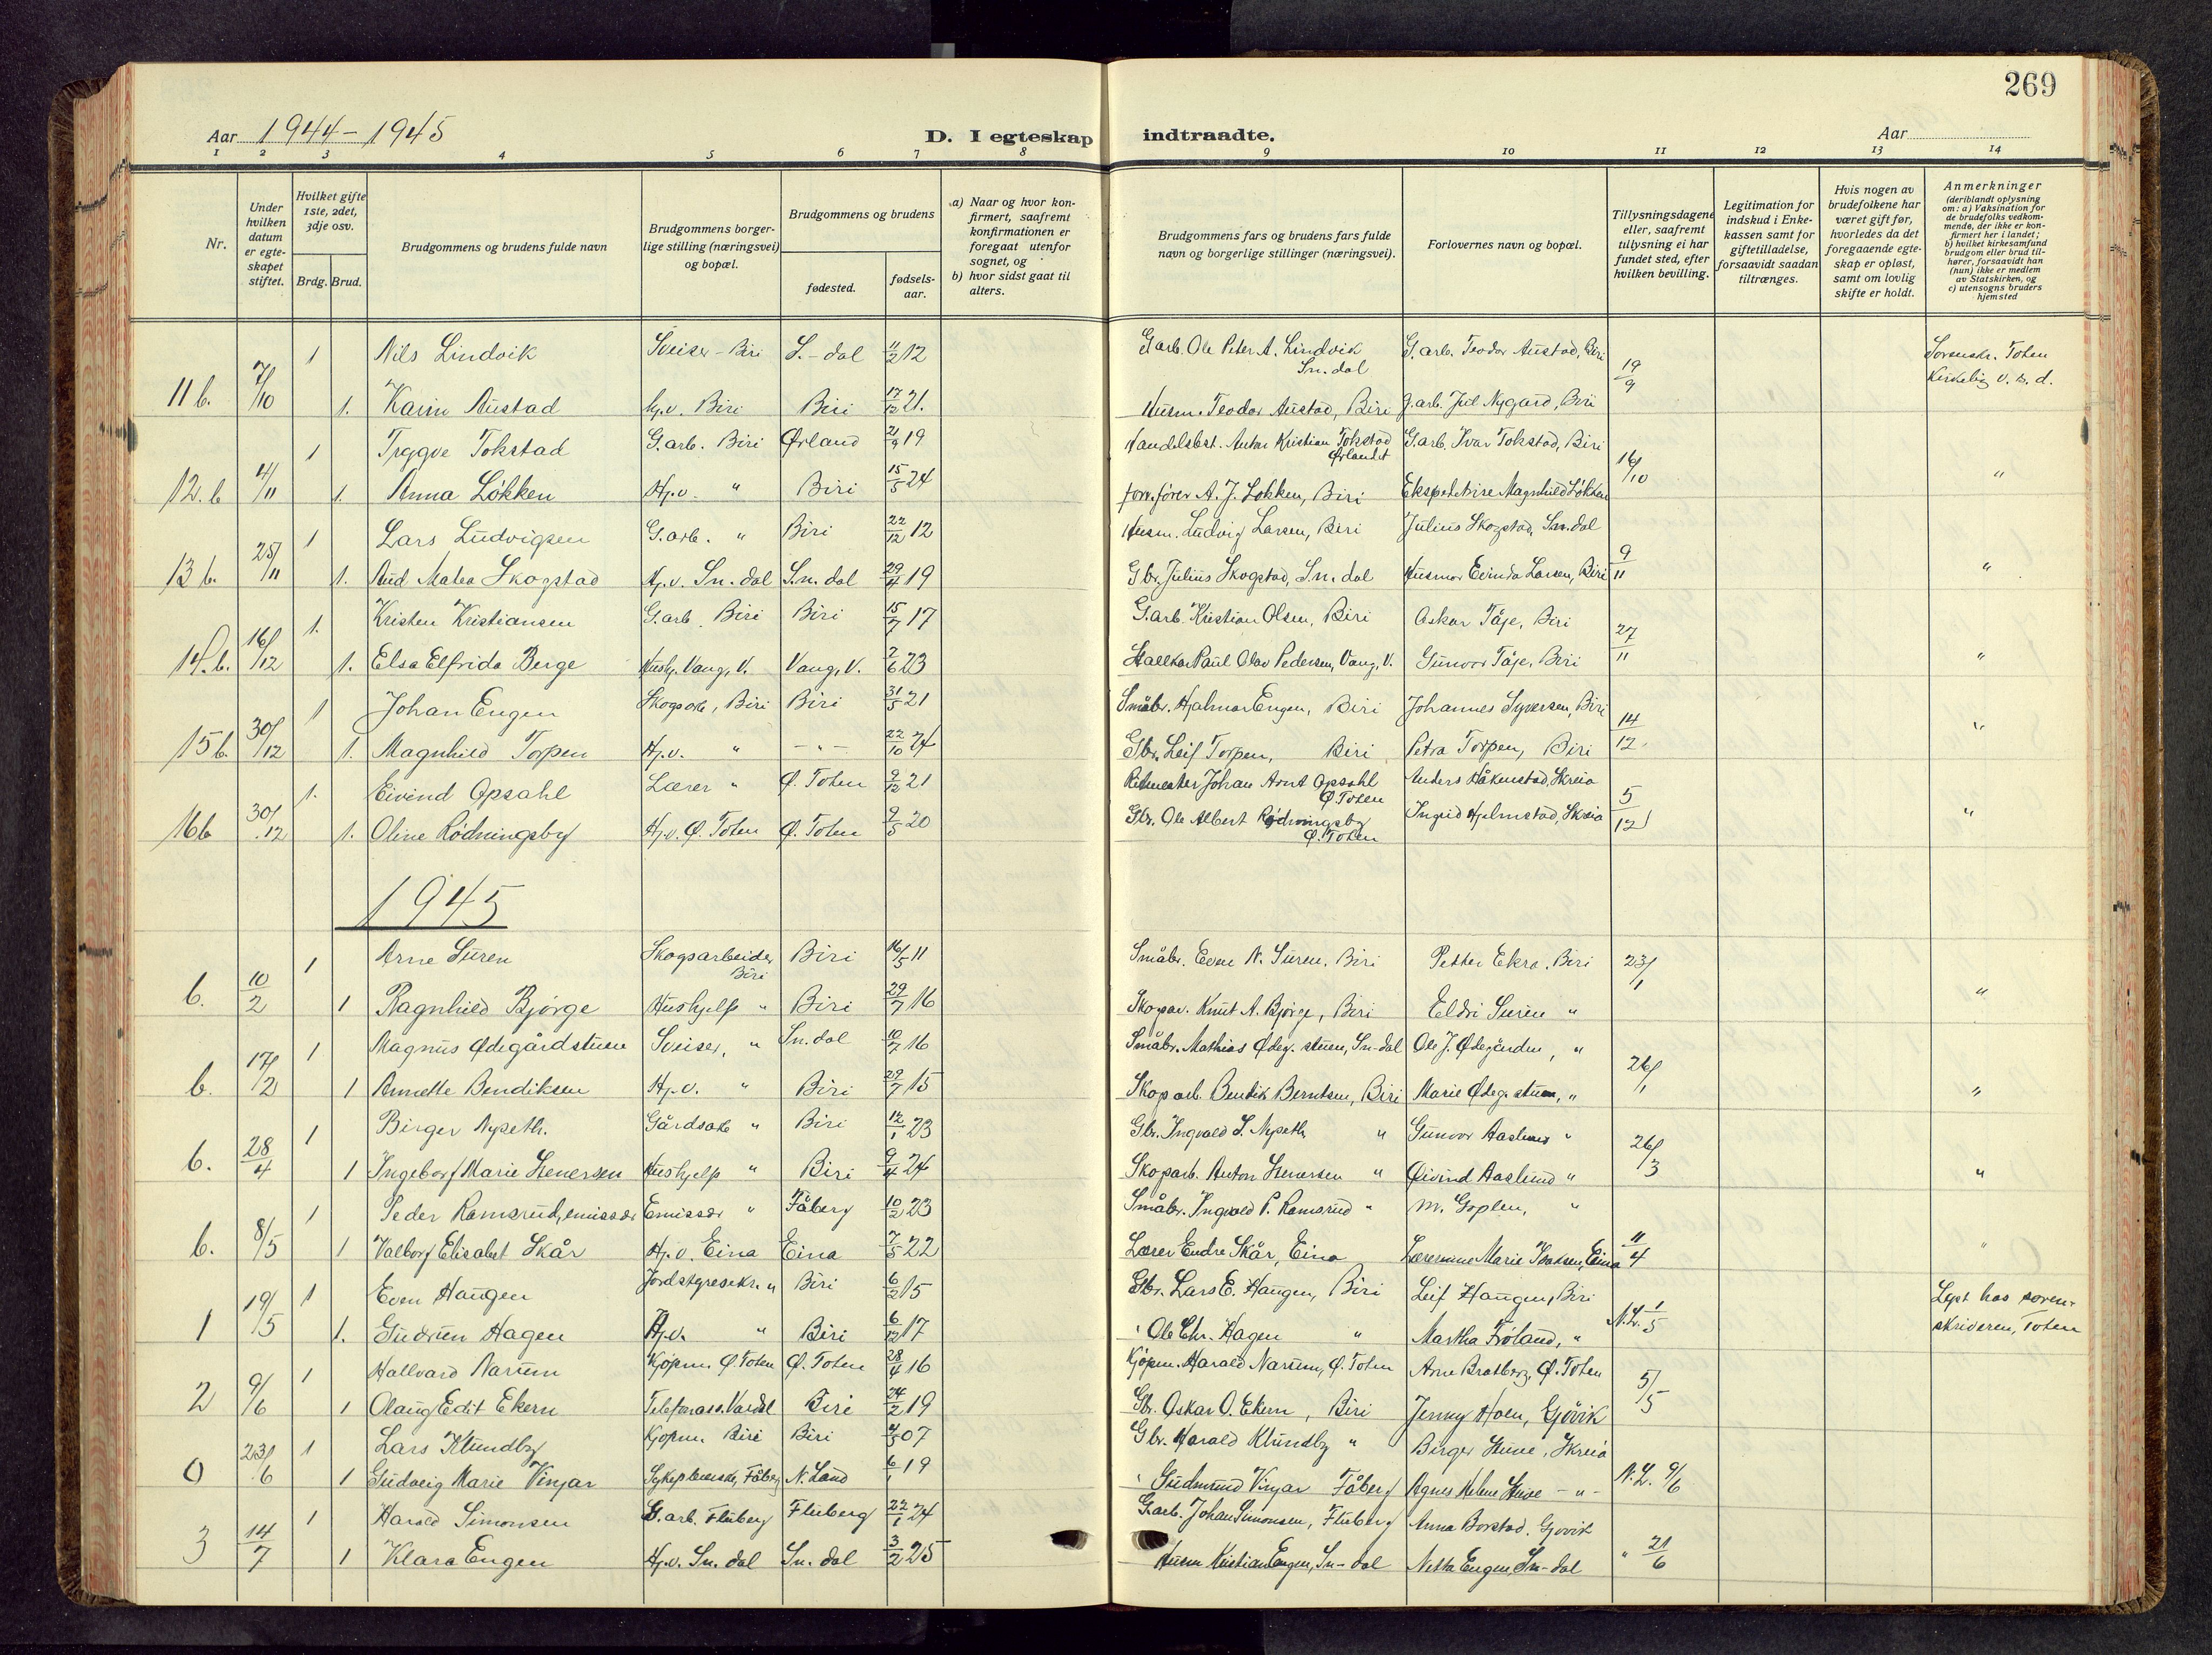 269
Aar 1944-1945
D. I egteskap indtraadte.
Aar
1 2 3 4 5 6 7 8 9 10 11 12 13 14
Nr.
Under hvilken datum er egteskapet stiftet.
Hvilket gifte 1ste, 2det, 3dje osv.
Brdg. Brud.
Brudgommens og brudens fulde navn
Brudgommens borgerlige stilling (næringsvei) og bopæl.
Brudgommens og brudens
fødested.
fødselsaar.
a) Naar og hvor konfirmert, saafremt konfirmationen er foregaat utenfor sognet, og
b) hvor sidst gaat til alters.
Brudgommens fars og brudens fars fulde navn og borgerlige stillinger (næringsvei).
Forlovernes navn og bopæl.
Tillysningsdagene eller, saafremt tillysning ei har fundet sted, efter hvilken bevilling.
Legitimation for indskud i Enkekassen samt for giftetilladelse, forsaavidt saadan tiltrænges.
Hvis nogen av brudefolkene har været gift før, hvorledes da det foregaaende egteskap er opløst, samt om lovlig skifte er holdt.
Anmerkninger (deriblandt oplysning om: a) Vaksination for de brudefolks vedkommende, der ikke er konfirmert her i landet; b) hvilket kirkesamfund brudgom eller brud tilhører, forsaavidt han (hun) ikke er medlem av Statskirken, og c) utensogns bruders hjemsted
1 Nils Lindvik Sveiser - Biri S.-dal 11/2 12 G.arb. Ole Peter A. Lindvik Sn.dal G.arb. Teodor Austad, Biri Sorenskr. Toten
11 b. 7/10 1. Karin Austad Hj.v. Biri Biri 17/12 21. Husm. Teodor Austad, Biri G.arb. Jul Nygard, Biri 19/9 Kirkelig v. s. d.
1 Trygve Tokstad G.arb. Biri Ørland 21/9 19 Handelsbest. Anton Kristian Tokstad Ørlandet G.arb. Ivar Tokstad, Biri
12. b 4/11 1. Anna Løkken Hj.v. " Biri 15/5 24 A. J. Løkken, Biri Magnhild Løkken 16/10 "
1 Lars Ludvigsen G.arb. " Biri 22/12 12 Husm. Ludvig Larsen, Biri Julius Skogstad, Sn.dal
13 b. 25/11 1. Aud Matea Skogstad Hj.v. Sn.dal Sn.dal 29/4 19 Gbr. Julius Skogstad, Sn.dal Husmor Evinda Larsen, Biri 9/11 "
1. Kristen Kristiansen G.arb. Biri Biri 15/7 17 G.arb. Kristian Olsen, Biri Oskar Tåje, Biri
14. b. 16/12 1. Elsa Elfrida Berge Hushj. Vang, V. Vang, V. 2/6 23 Paul Olav Pedersen, Vang, V. Gunvor Tåje, Biri 27/11 "
1 Johan Engen Skogsarb, Biri Biri 31/5 21 Småbr. Hjalmar Engen, Biri Johannes Syversen, Biri
15 b. 30/12 1. Magnhild Torpen Hj.v. " -"- 22/10 24 Gbr. Leif Torpen, Biri Petra Torpen, Biri 14/12 "
1. Eivind Opsahl Lærer " Ø. Toten 9/12 21 Johan Arnt Opsahl Ø. Toten Anders Håkenstad, Skreia
16 b 30/12 1. Oline Rødningsby Hj.v. Ø. Toten Ø. Toten 2/5 20 Gbr. Ole Albert Rødningsby Ø. Toten Ingrid Hjelmstad, Skreia 5/12 "
1945
1 Arne Suren Skogsarbeider Biri Biri 16/5 11 Småbr. Even N. Suren, Biri Petter Ekra, Biri
b. 10/2 1 Ragnhild Bjørge Hushjelp " Biri 29/7 16 Skogar. Knut A. Bjørge, Biri Eldri Suren " 23/1 "
1 Magnus Ødegårdstuen Sveiser, " Sn.dal 10/7 16 Småbr. Mathias Ødeg.stuen, Sn-dal Ole J. Ødegården, "
b. 17/2 1 Annette Bendiksen Hj.v. " Biri 29/7 15 Skogarb. Bendik Berntsen, Biri Marie Ødeg.stuen, " 26/1 "
1 Birger Nyseth. Gårdsarb " Biri 12/1 23 Gbr. Ingvald S. Nyseth " Gunvor Aaslund "
b. 28/4 1 Ingeborg Marie Stenersen Hushjelp " Biri 9/4 24 Skogarb. Anton Stenersen " Øivind Aaslund " 26/3 "
1 Peder Ramsrud, emissær Emissær " Fåberg 10/2 23 Småbr. Ingvald P. Ramsrud " M. Goplen, "
b. 8/5 1 Valborg Elisabet Skår Hj.v. Eina Eina 7/5 22 Lærer Endre Skår, Eina Lærerinne Marie Isaksen, Eina 11/4 "
1 Even Haugen Jordstyresekr. " Biri 6/2 15 Gbr. Lars E. Haugen, Biri Leif Haugen, Biri Lyst hos soren-
1 19/5 1. Gudrun Hagen Hj.v. " Biri 6/12 17 " Ole Chr. Hagen " Martha Frøland, " N.L. 1/5 skriveren, Toten
1 Hallvard Narum Kjøpm. Ø. Toten Ø. Toten 28/4 16 Kjøpm. Harald Narum, Ø. Toten Arne Bratberg, Ø. Toten
2 9/6 1 Olaug Edit Ekern Telefonass. Vardal Biri 24/2 19 Gbr. Oskar O. Ekern, Biri Jenny Hoen, Gjøvik 5/5
1 Lars Klundby Kjøpm. Biri Biri 07 Gbr. Harald Klundby " Birger Stuve, Skreia
0 23/6 1 Gudveig Marie Vinjar Sykepleierske, Fåberg N. Land 6/1 19 " Gudmund Vinjar Fåberg Agnes Helene Stuve -"- N.L. 9/6
1 Harald Simonsen G.arb. Fluberg Fluberg 22/1 24 G.arb. Johan Simonsen, Fluberg Anna Borstad, Gjøvik
3 14/7 1 Klara Engen Hj.v. Sn.dal Sn.dal 3/2 25 Husm Kristian Engen, Sn-dal Netta Engen, Sn-dal " 21/6